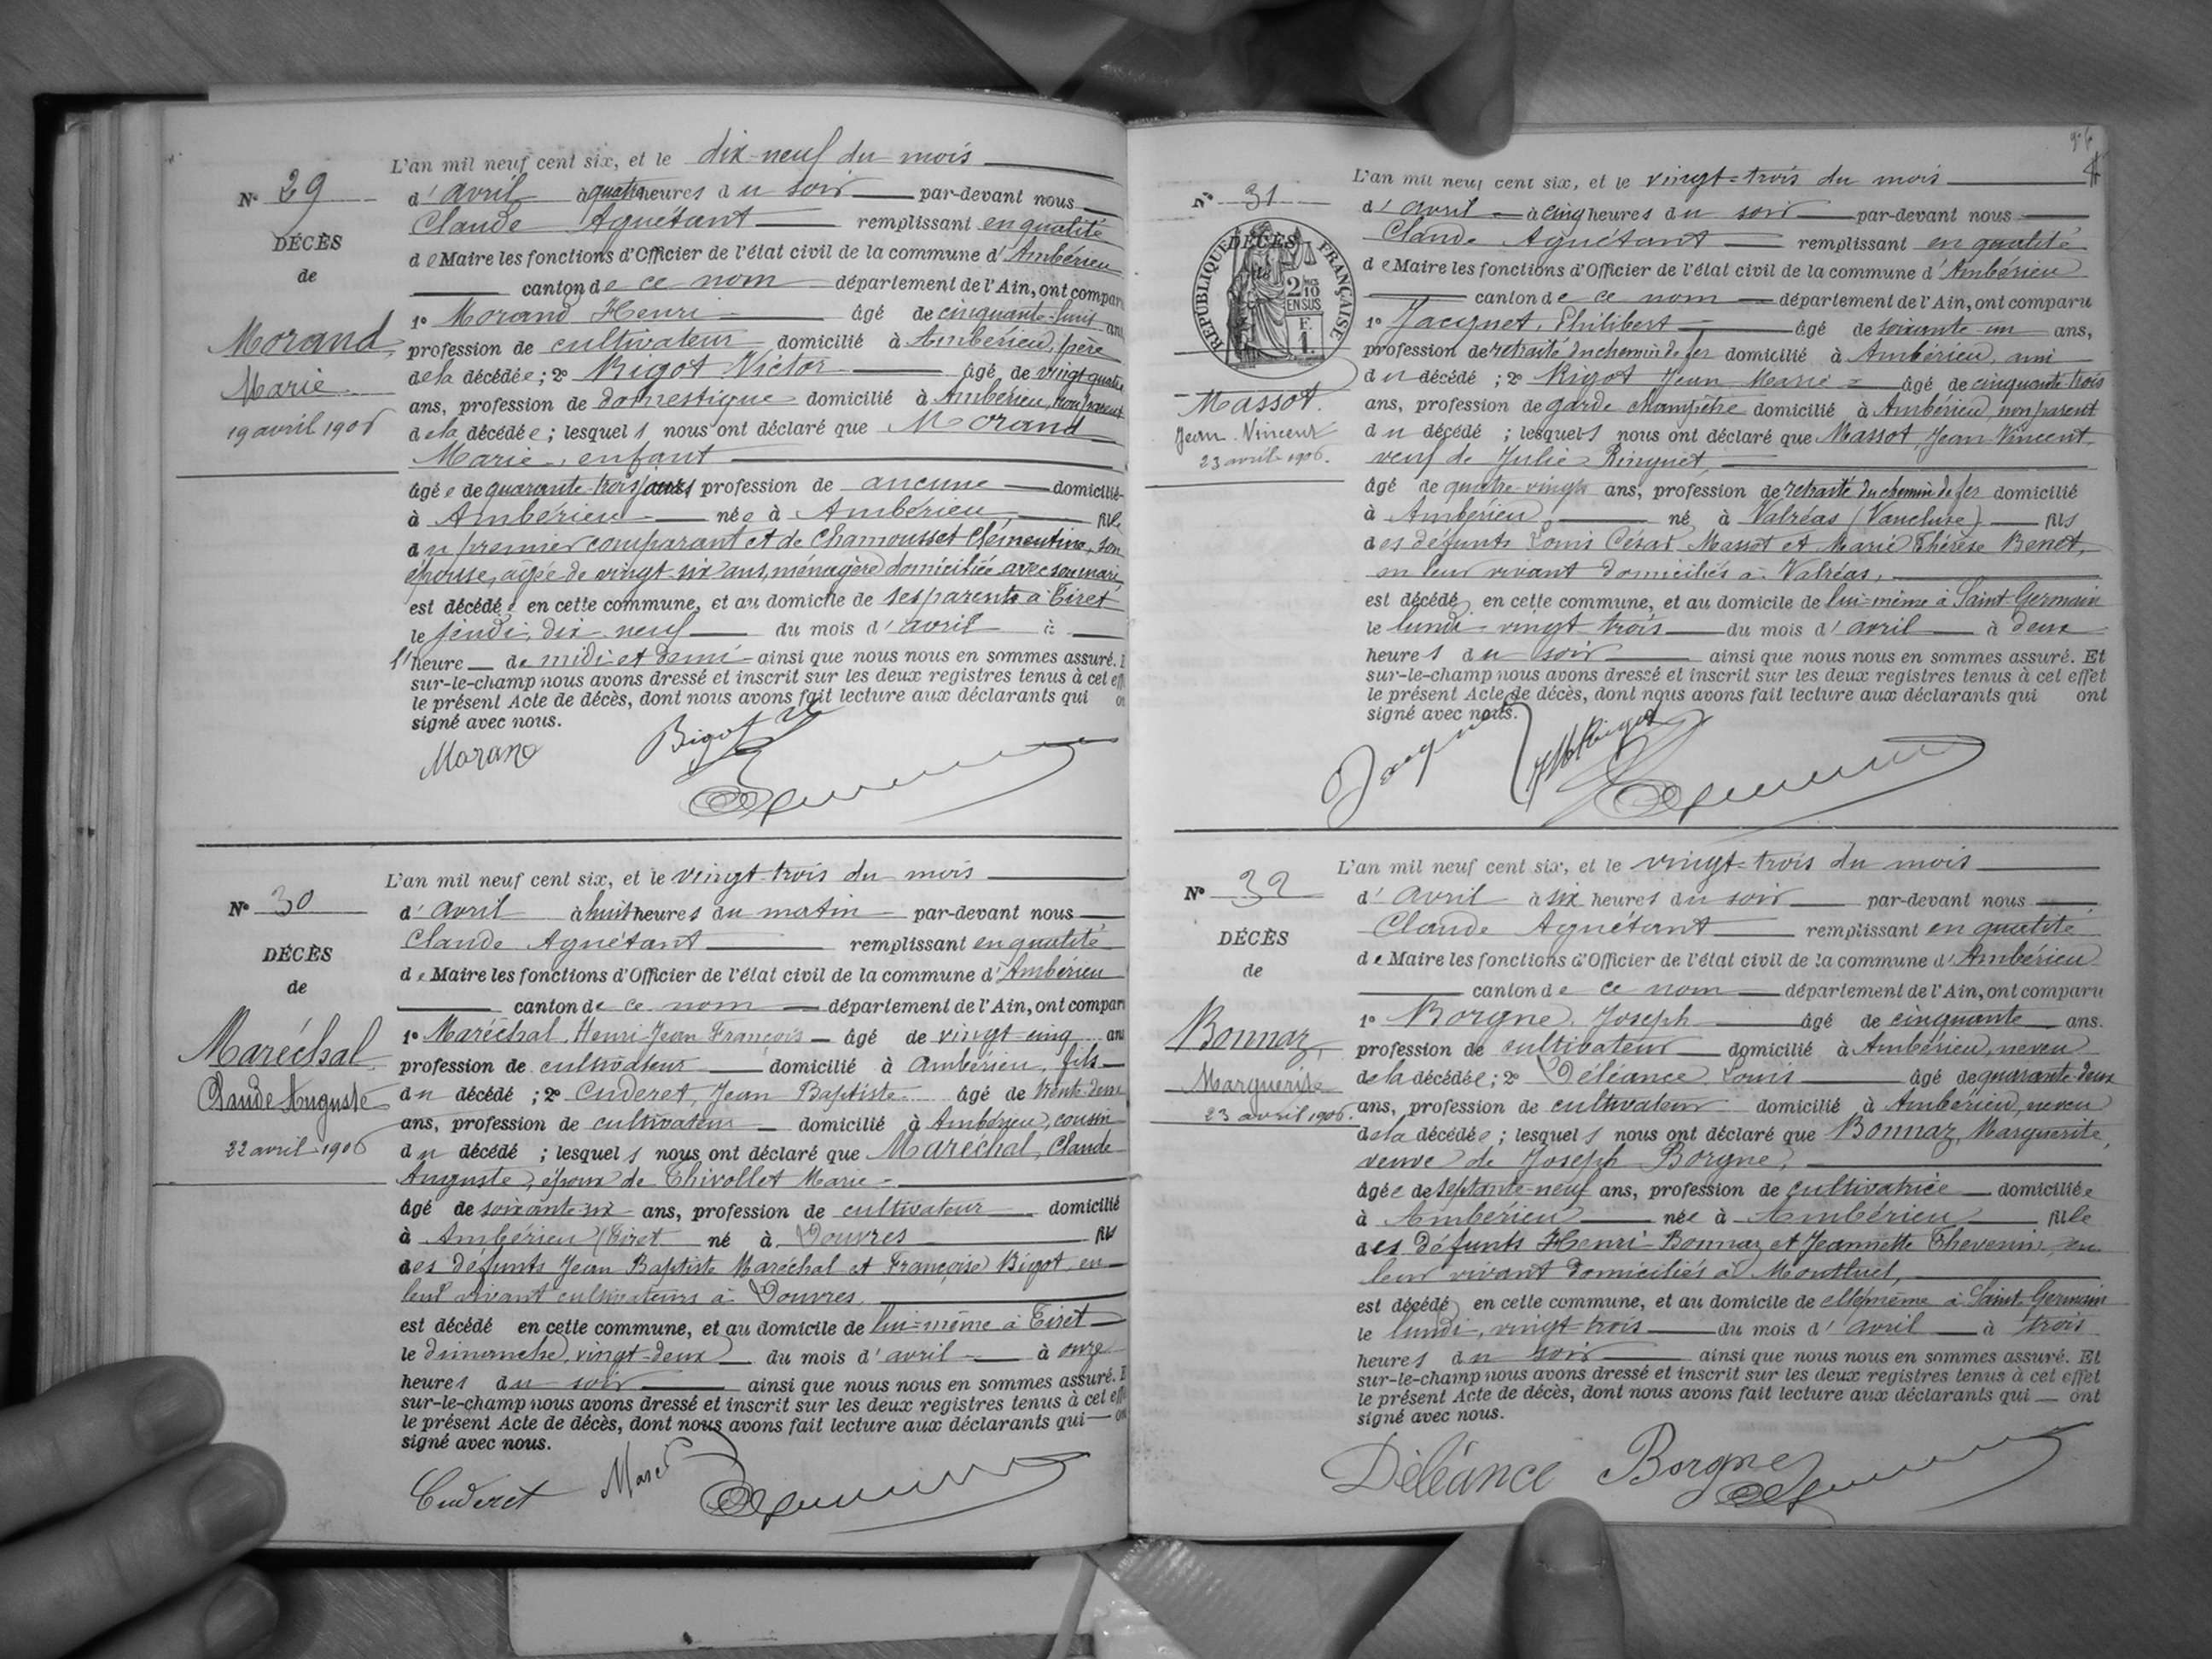 L'an mil neuf cent six, et le dix-neuf du mois
N° 29
d'avril à quatre heures du soir par-devant nous
Claude Aguétant remplissant en qualité
DÉCÈS
de Maire les fonctions d'Officier de l'état civil de la commune d'Ambérieu
de
canton de ce nom département de l'Ain, ont compar
1° Morand Henri âgé de cinquante-huit ans
Morand
profession de cultivateur domicilié à Ambérieu, père
Marie
de la décédée; 2° Bigot Victor âgé de vingt quatre
19 avril 1906
ans, profession de domestique domicilié à Ambérieu, non parent
de la décédée; lesquels nous ont déclaré que Morand
Marie, enfant
âgée de quarante-trois jours profession de aucune domicilié
à Ambérieu née à Ambérieu, fille
du premier comparant et de Chamousset Clémentine, son
épouse, agée de vingt-six ans, ménagère domiciliée avec son mari,
est décédée en cette commune, et au domicile de ses parents à Tiret
le jeudi, dix-neuf du mois d'avril à
l'heure de midi et demi ainsi que nous nous en sommes assuré.
sur-le-champ nous avons dressé et inscrit sur les deux registres tenus à cet eff
le présent Acte de décès, dont nous avons fait lecture aux déclarants qui
signé avec nous.
Morand Bigot
L'an mil neuf cent six, et le vingt-trois du mois
N° 30
d'avril à huit heures du matin par-devant nous
Claude Aguétant remplissant en qualité
DÉCÈS
de Maire les fonctions d'Officier de l'état civil de la commune d'Ambérieu
de
canton de ce nom département de l'Ain, ont compar
1° Maréchal, Henri Jean François âgé de vingt-cinq ans
Maréchal
profession de cultivateur domicilié à Ambérieu, fils
Claude Auguste
du décédé; 2° Cuderet, Jean Baptiste âgé de trente-deux
ans, profession de cultivateur domicilié à Ambérieu, cousin
22 avril 1906
du décédé; lesquels nous ont déclaré que Maréchal, Claude
Auguste, époux de Thivollet Marie
âgé de soixante six ans, profession de cultivateur domicilié
à Ambérieu (Tiret né à Douvres fils
des défunts Jean Baptiste Maréchal et Françoise Bigot en
leur vivant cultivateurs à Douvres.
est décédé en cette commune, et au domicile de lui-même à Tiret
le dimanche, vingt-deux du mois d'avril à onze
heures du soir ainsi que nous nous en sommes assuré.
sur-le-champ nous avons dressé et inscrit sur les deux registres tenus à cet eff
le présent Acte de décès, dont nous avons fait lecture aux déclarants qui
signé avec nous.
Cuderet
L'an mil neuf cent six, et le vingt-trois du mois
N° 31
d'avril à cinq heures du soir par-devant nous
Claude Aguétant remplissant en qualité
DÉCÈS
de
RÉPUBLIQUE FRANÇAISE
2/10 EN SUS
F. 1.
de Maire les fonctions d'Officier de l'état civil de la commune d'Ambérieu
canton de ce nom département de l'Ain, ont comparu
1° Jacquet, Philibert âgé de soixante-un ans,
profession de retraité du chemin de fer domicilié à Ambérieu, ami
du décédé; 2° Rigot Jean Marie âgé de cinquante-trois
Massot
ans, profession de garde champêtre domicilié à Ambérieu, non parent
Jean Vincent
du décédé; lesquels nous ont déclaré que Massot, Jean Vincent,
23 avril 1906.
veuf de Julie Ringuet,
âgé de quatre-vingts ans, profession de retraité du chemin de fer domicilié
à Ambérieu, né à Valréas (Vaucluse) fils
des défunts Louis César Massot et Marie Thérèse Benet,
en leur vivant domiciliés à Valréas,
est décédé en cette commune, et au domicile de lui-même à Saint-Germain
le lundi vingt trois du mois d'avril à deux
heures du soir ainsi que nous nous en sommes assuré. Et
sur-le-champ nous avons dressé et inscrit sur les deux registres tenus à cet effet
le présent Acte de décès, dont nous avons fait lecture aux déclarants qui ont
signé avec nous.
Jacquet
L'an mil neuf cent six, et le vingt-trois du mois
N° 32
d'avril à six heures du soir par-devant nous
Claude Aguétant remplissant en qualité
DÉCÈS
de Maire les fonctions d'Officier de l'état civil de la commune d'Ambérieu
de
canton de ce nom département de l'Ain, ont comparu
1° Borgne, Joseph âgé de cinquante ans.
Bonnaz,
profession de cultivateur domicilié à Ambérieu, neveu
Marguerite
de la décédée; 2° Déléance, Louis âgé de quarante-deux
23 avril 1906.
ans, profession de cultivateur domicilié à Ambérieu, neveu
de la décédée; lesquels nous ont déclaré que Bonnaz, Marguerite,
veuve de Joseph Borgne,
âgée de septante-neuf ans, profession de cultivatrice domiciliée
à Ambérieu née à Ambérieu fille
des défunts Henri Bonnaz et Jeannette Thevenin, en
leur vivant domiciliés à Montluel,
est décédé en cette commune, et au domicile de elle-même à Saint-Germain
le lundi, vingt-trois du mois d'avril à trois
heures du soir ainsi que nous nous en sommes assuré. Et
sur-le-champ nous avons dressé et inscrit sur les deux registres tenus à cet effet
le présent Acte de décès, dont nous avons fait lecture aux déclarants qui ont
signé avec nous.
Déléance Borgne